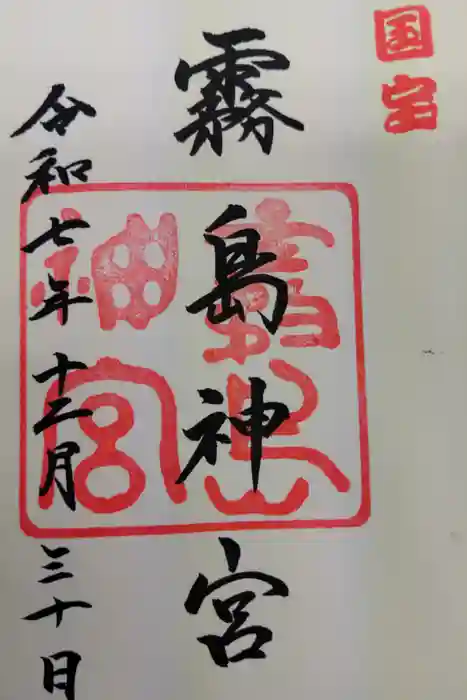 国宝
霧島神宮
霧島
神宮
令和七年十二月三十日